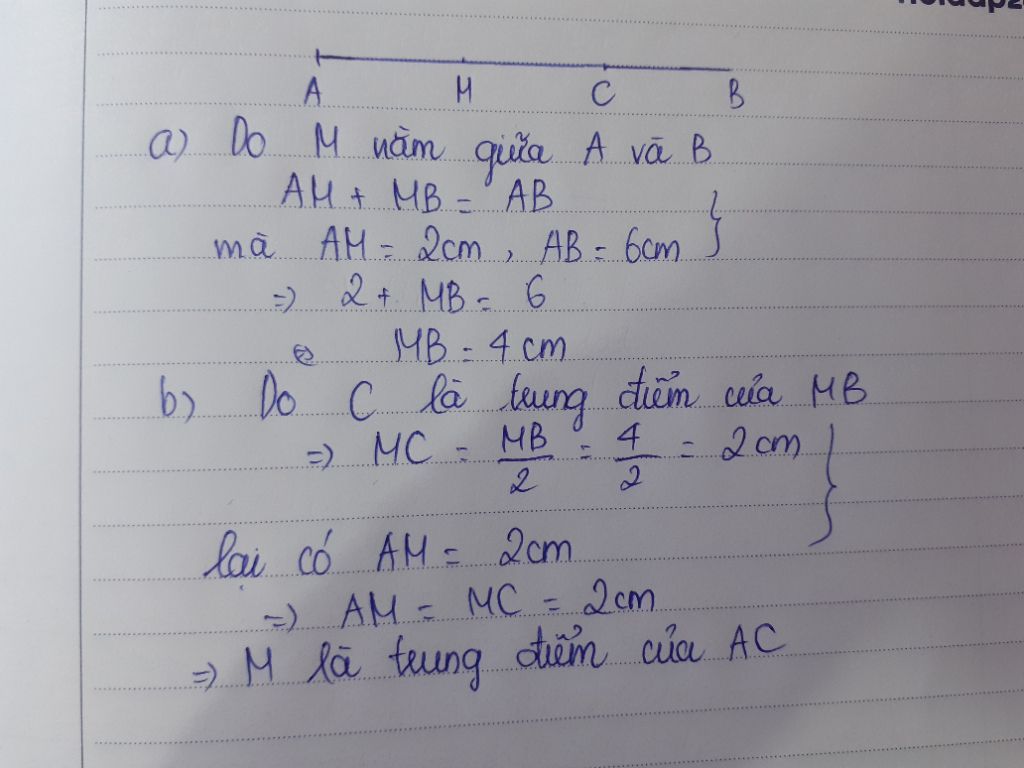 A M C B
a) Do M nằm giữa A và B
AM + MB = AB
mà AM = 2cm, AB = 6cm }
=> 2 + MB = 6
MB = 4 cm
b) Do C là trung điểm của MB
=> MC = MB/2 = 4/2 = 2 cm }
lại có AM = 2cm
=> AM = MC = 2cm
=> M là trung điểm của AC